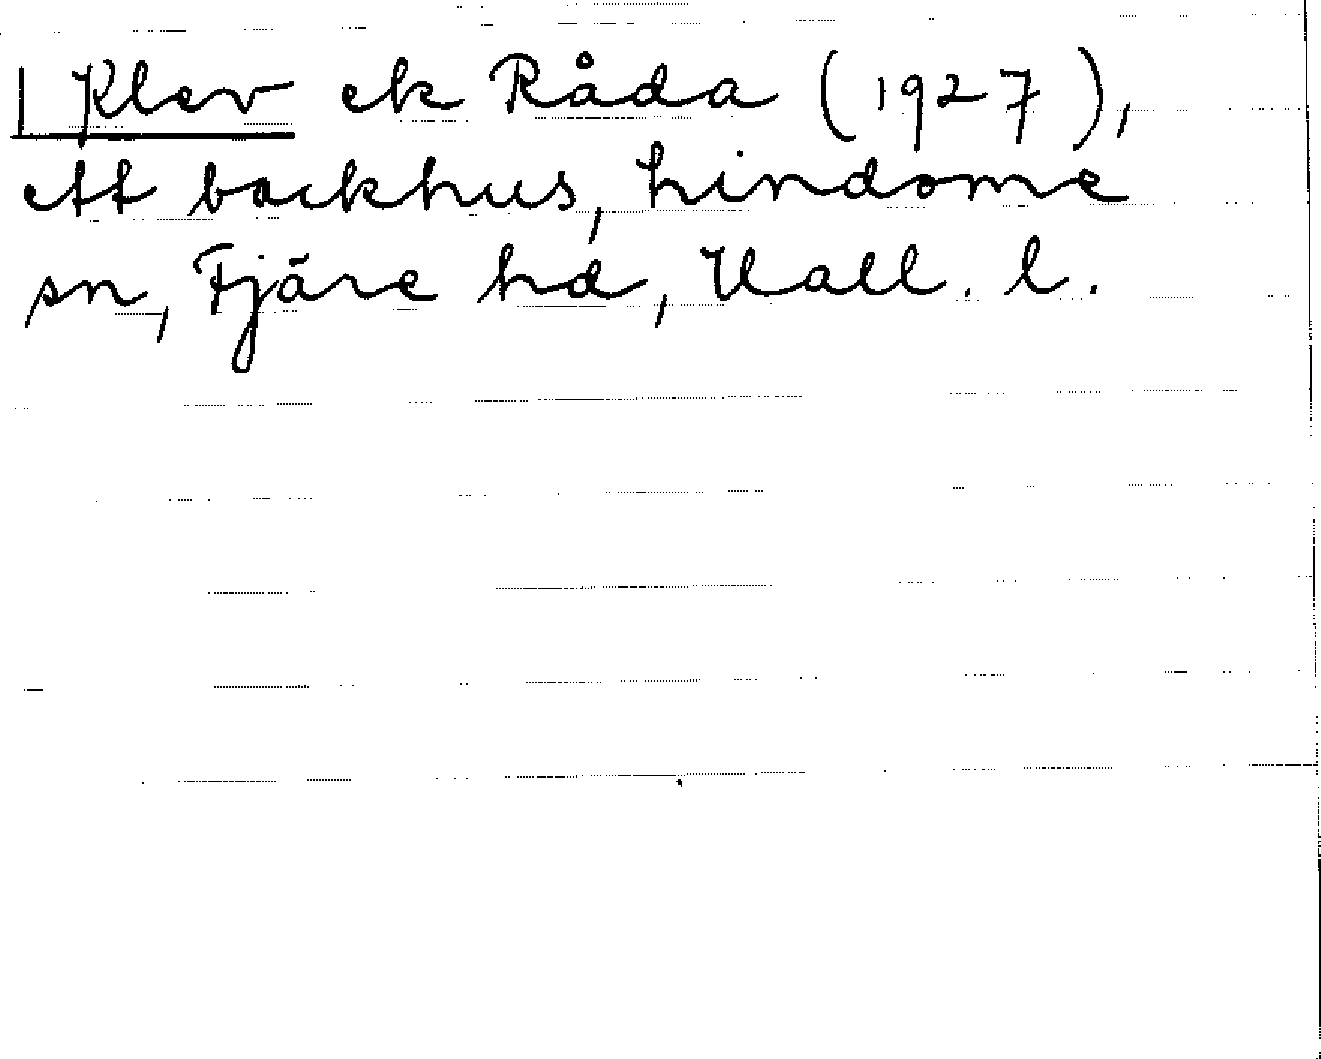 Klev ek Råda (1927),
ett backhus, Lindome
sn, Fjäre hd, Hall. l.